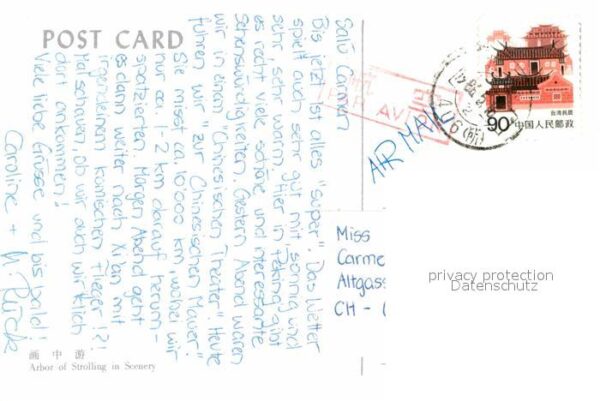 POST CARD
Salü Carmen
Bis jetzt ist alles "super". Das Wetter
spielt auch sehr gut mit, sonnig und
sehr, sehr warm. Hier in Peking gibt
es recht viele schöne und interessante
Sehenswürdigkeiten. Gestern Abend waren
wir in einem "Chinesischen Theater". Heute
fuhren wir "zur Chinesischen Mauer".
Sie misst ca. 10'000 km, wobei wir
nur ca. 1-2 km darauf herum-
spatzierten. Morgen Abend geht
es dann weiter nach Xi'an mit
irgendeinem komischen Flieger!?!
Mal schauen, ob wir auch wirklich
dort ankommen!
Viele liebe Grüsse und bis bald!
Caroline +
画中游
Arbor of Strolling in Scenery
PAR AVION
AIR MAIL
台湾民居
90
中国人民邮政
Miss
Carme
Altgass
CH -
privacy protection
Datenschutz